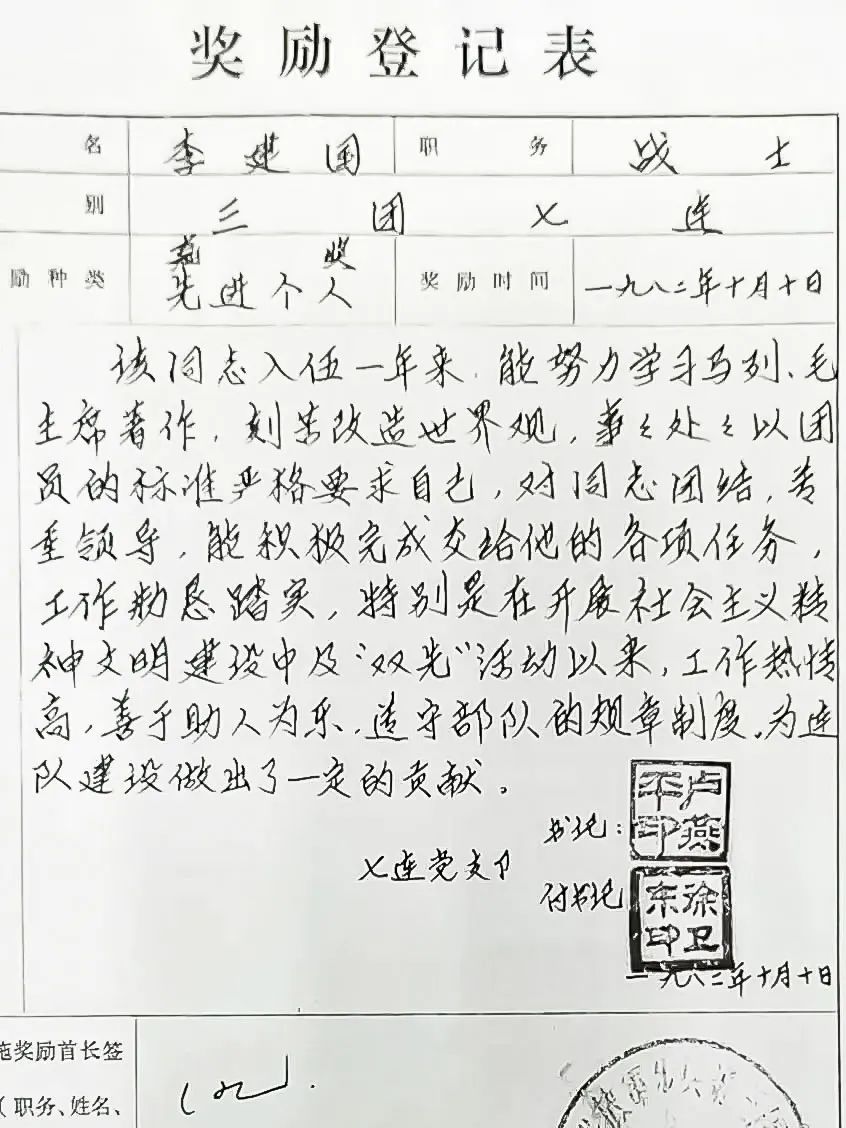 奖励登记表
名 李建国 职务 战士
别 三团七连
励种类 先进个人 奖励时间 一九八二年十月十日
该同志入伍一年来.能努力学习马列、毛
主席著作,刻苦改造世界观,事々处々以团
员的标准严格要求自己,对同志团结,尊
重领导,能积极完成交给他的各项任务,
工作勤恳踏实,特别是在开展社会主义精
神文明建设中及“双先”活动以来,工作热情
高,善于助人为乐,遵守部队的规章制度,为连
队建设做出了一定的贡献。
书记: 卢燕平印
七连党支卩
付书记 徐卫东印
一九八二年十月十日
施奖励首长签
(职务、姓名、